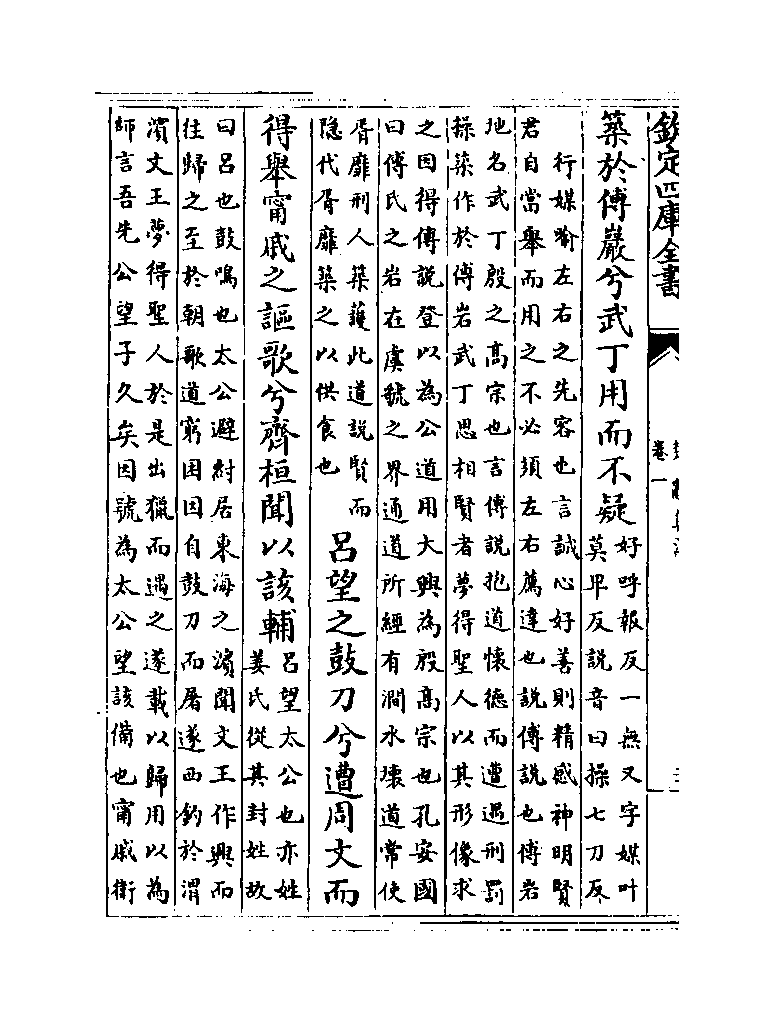 欽定四庫全書
卷一
築於傅巖兮武丁用而不疑
好呼報反一無又字媒叶
莫丕反說音曰操七刀反
行媒喻左右之先容也言誠心好善則精感神明賢
君自當舉而用之不必須左右薦達也說傅說也傅岩
地名武丁殷之髙宗也言傅說抱道懷德而遭遇刑罰
操築作於傅岩武丁思相賢者夢得聖人以其形像求
之因得傅說登以為公道用大興為殷髙宗也孔安國
曰傅氏之岩在虞虢之界通道所經有澗水壞道常使
胥靡刑人築䕶此道說賢而
隱代胥靡築之以供食也
呂望之鼓刀兮遭周文而
得舉甯戚之謳歌兮齊桓聞以該輔
呂望太公也亦姓
姜氏從其封姓故
曰呂也鼓鳴也太公避紂居東海之濱聞文王作興而
往歸之至於朝歌道窮困因自鼓刀而屠遂西釣於渭
濱文王夢得聖人於是出獵而遇之遂載以歸用以為
師言吾先公望子久矣因號為太公望該備也甯戚衛